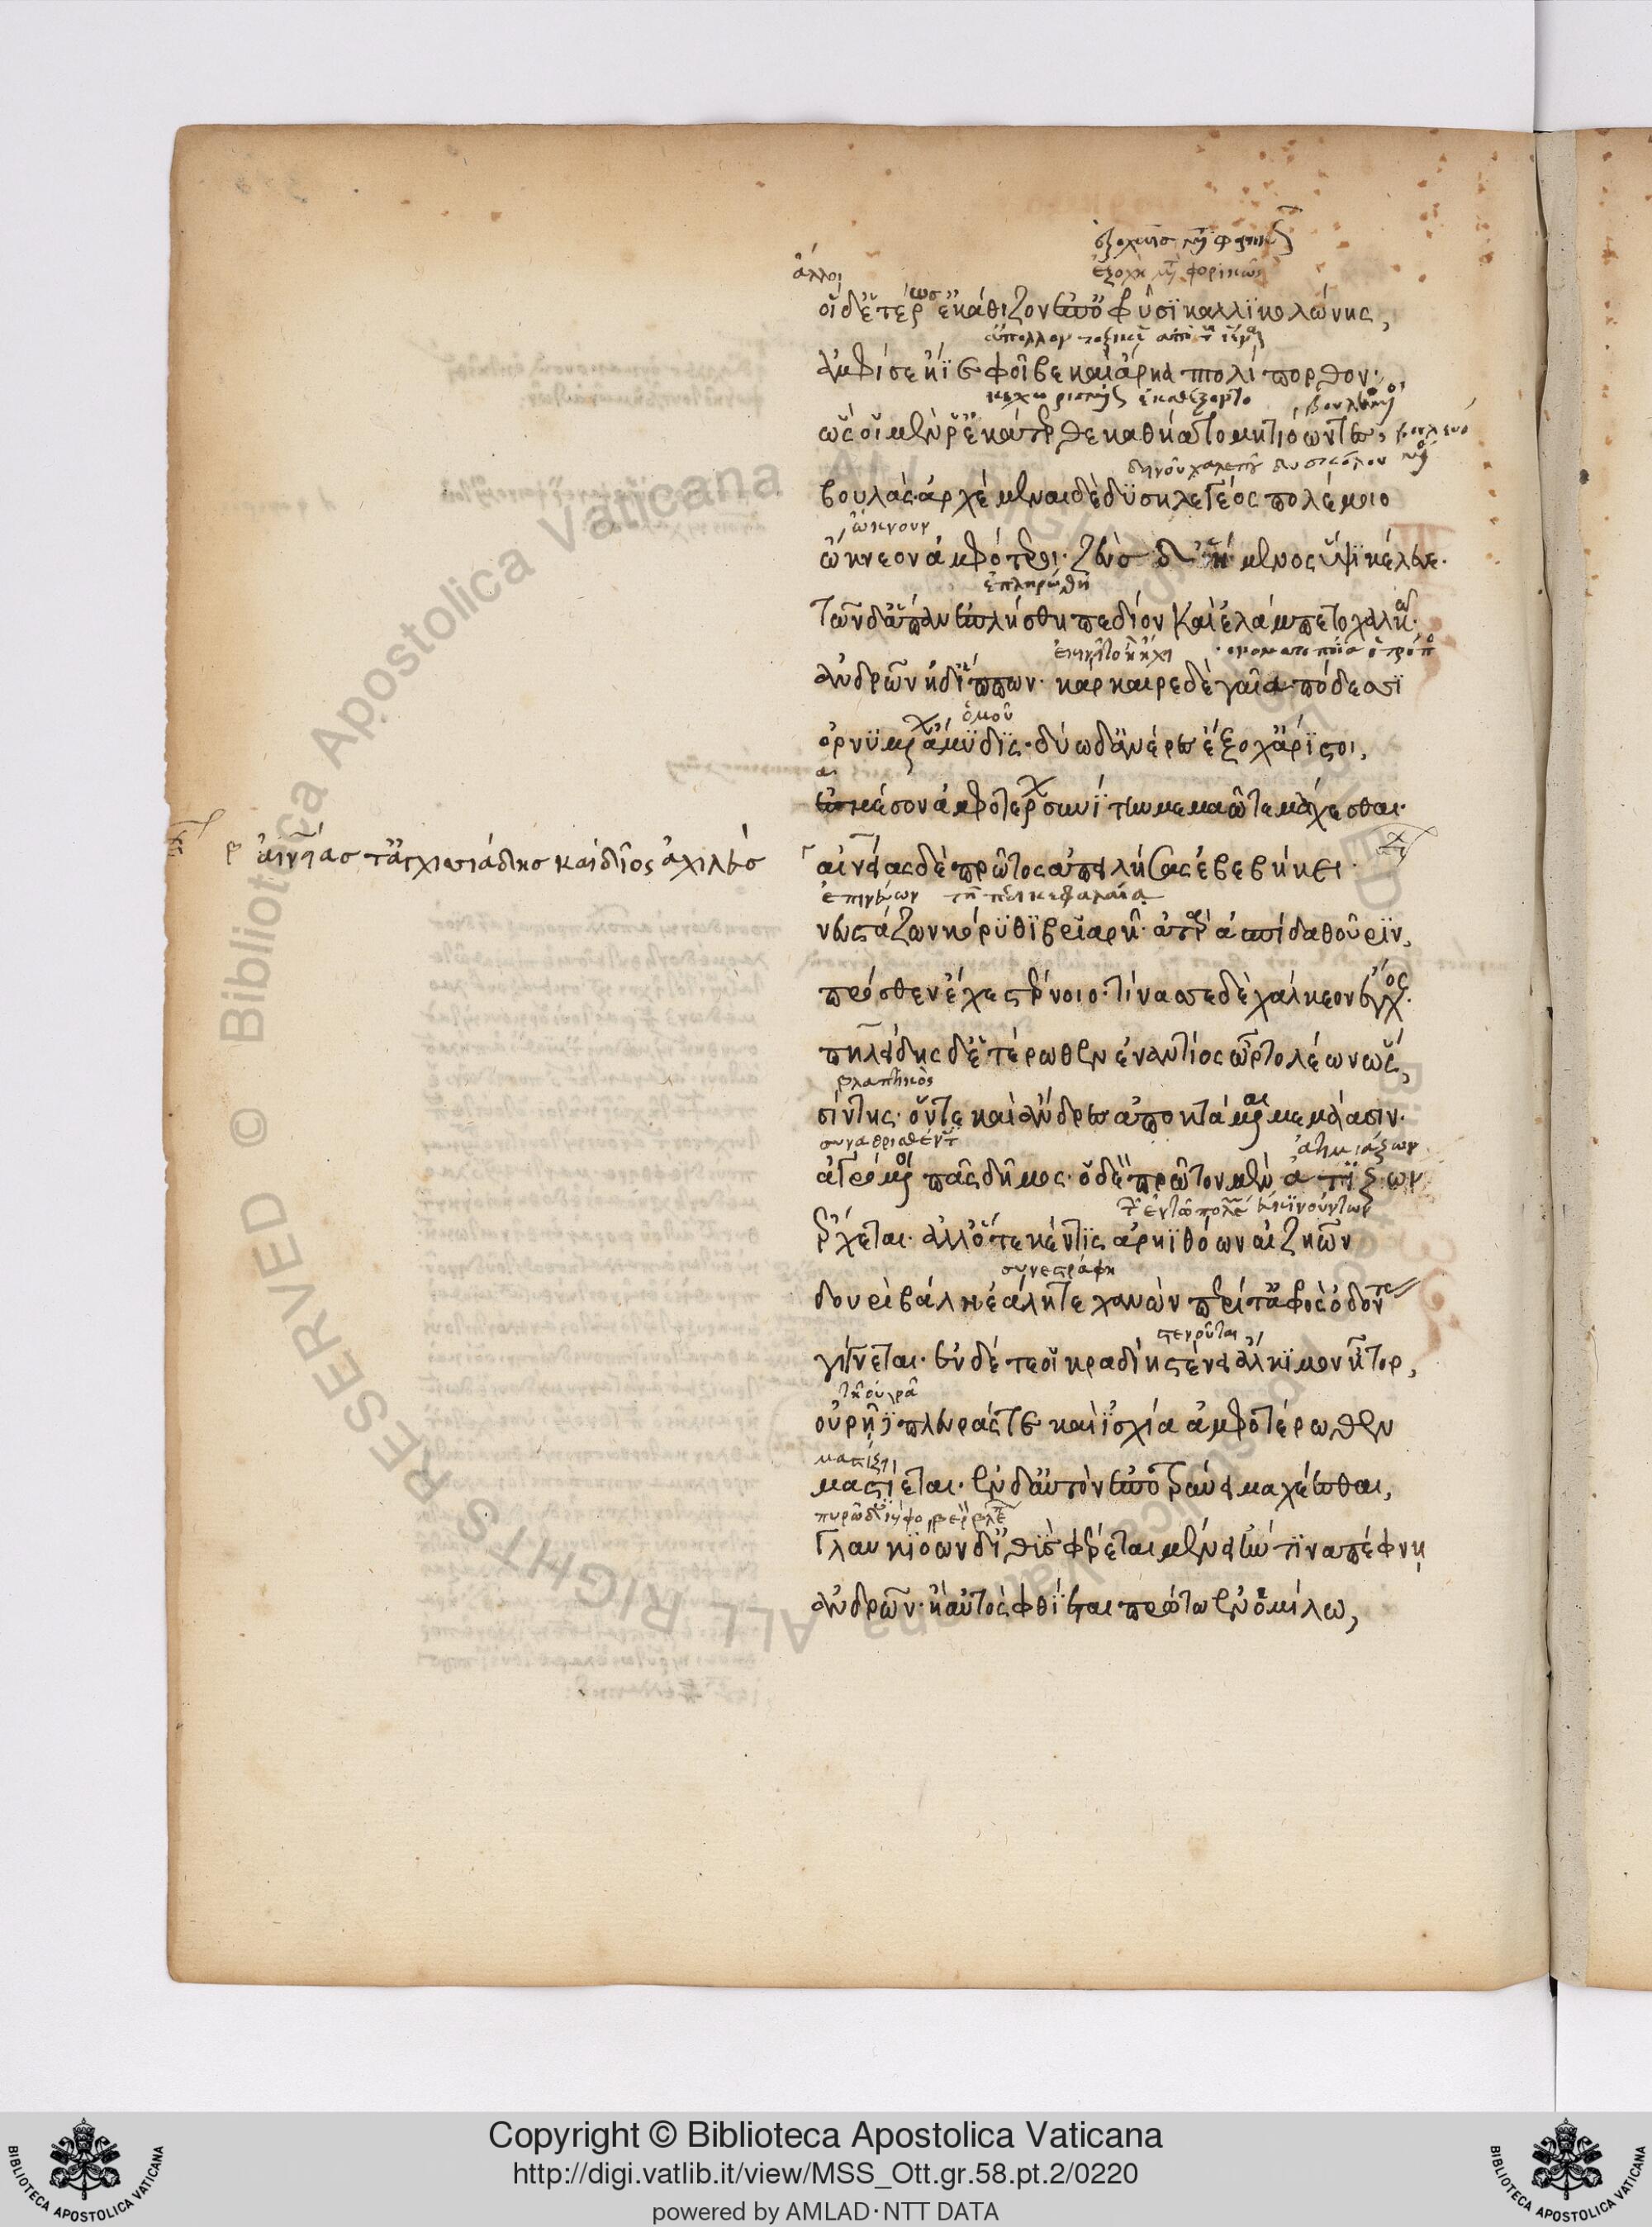 ἄλλοι
οἳ δ' ἑτέρωσ' ἐκάθιζον ἐπ' ὀφρύσι καλλικολώνης,
ἀμφί σε ἤϊε φοῖβε καὶ ἄρηα πτολίπορθον·
κεχωρισμένως ἐκαθέζοντο
ὣς οἳ μὲν ῥ' ἑκάτερθε καθήατο μητιόωντες
βουλάς· ἀρχέμεναι δὲ δυσηλεγέος πολέμοιο
ὤκνουν
ὤκνεον ἀμφότεροι· ζεὺς δ' ἥμενος ὕψι κέλευε.
ἐπληρώθη
τῶν δ' ἅπαν ἐπλήσθη πεδίον καὶ ἐλάμπετο χαλκῷ
ἀνδρῶν ἠδ' ἵππων· κάρκαιρε δὲ γαῖα πόδεσσι
ὁμοῦ
ὀρνυμένων ἄμυδις· δύω δ' ἀνέρες ἔξοχ' ἄριστοι,
ἐς μέσον ἀμφοτέρων συνίτην μεμαῶτε μάχεσθαι·
αἰνείας τ' ἀγχισιάδης καὶ δῖος ἀχιλλεύς
αἰνείας δὲ πρῶτος ἀπειλήσας ἐβεβήκει·
ἐπινεύων τῇ περικεφαλαίᾳ
νευστάζων κόρυθι βριαρῇ· ἀτὰρ ἀσπίδα θοῦριν,
πρόσθεν ἔχε στέρνοιο· τίνασσε δὲ χάλκεον ἔγχος.
πηλείδης δ' ἑτέρωθεν ἐναντίος ὦρτο λέων ὥς,
βλαπτικὸς
σίντης· ὅν τε καὶ ἄνδρες ἀποκτάμεναι μεμάασιν·
συναθροισθέντες
ἀτιμάζων
ἀγρόμενοι πᾶς δῆμος· ὃ δὲ πρῶτον μὲν ἀτίζων
ἔρχεται· ἀλλ' ὅτε κέν τις ἀρηϊθόων αἰζηῶν
συνεστράφη
δουρὶ βάλῃ ἐάλη τε χανών περί τ' ἀφρὸς ὀδόντας
στενοῦται
γίνεται· ἐν δέ τέ οἱ κραδίῃ στένει ἄλκιμον ἦτορ,
τῇ οὐρᾷ
οὐρῇ δὲ πλευράς τε καὶ ἰσχία ἀμφοτέρωθεν
μαστίζει
μαστίεται· ἐν δ' αὐτὸν ἐποτρύνει μαχέσασθαι,
γλαυκιόων δ' ἰθὺς φέρεται μένει ἤν τινα πέφνῃ
ἀνδρῶν· ἢ αὐτὸς φθίεται πρώτῳ ἐν ὁμίλῳ,
© Biblioteca Apostolica Vaticana ALL RIGHTS RESERVED
Copyright © Biblioteca Apostolica Vaticana
http://digi.vatlib.it/view/MSS_Ott.gr.58.pt.2/0220
powered by AMLAD·NTT DATA
BIBLIOTECA APOSTOLICA VATICANA
BIBLIOTECA APOSTOLICA VATICANA